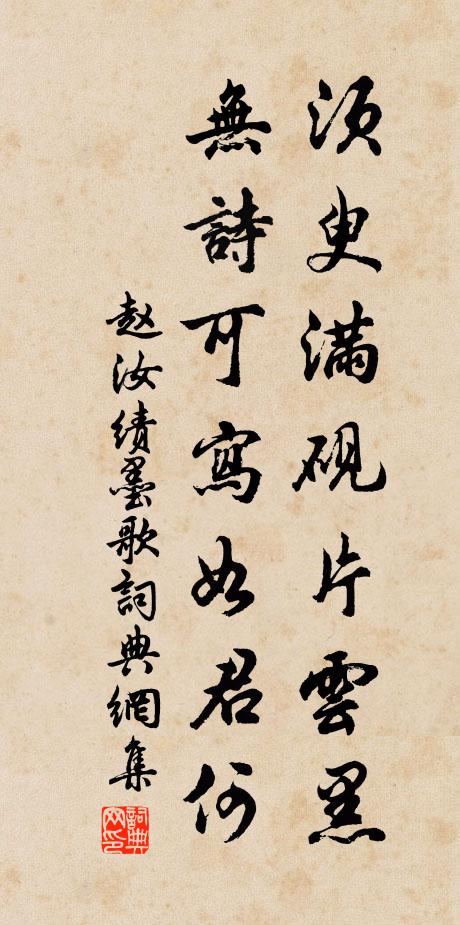 須臾滿硯片雲黑
無詩可寫如君何
赵汝績墨歌詞典網集
詞典网印